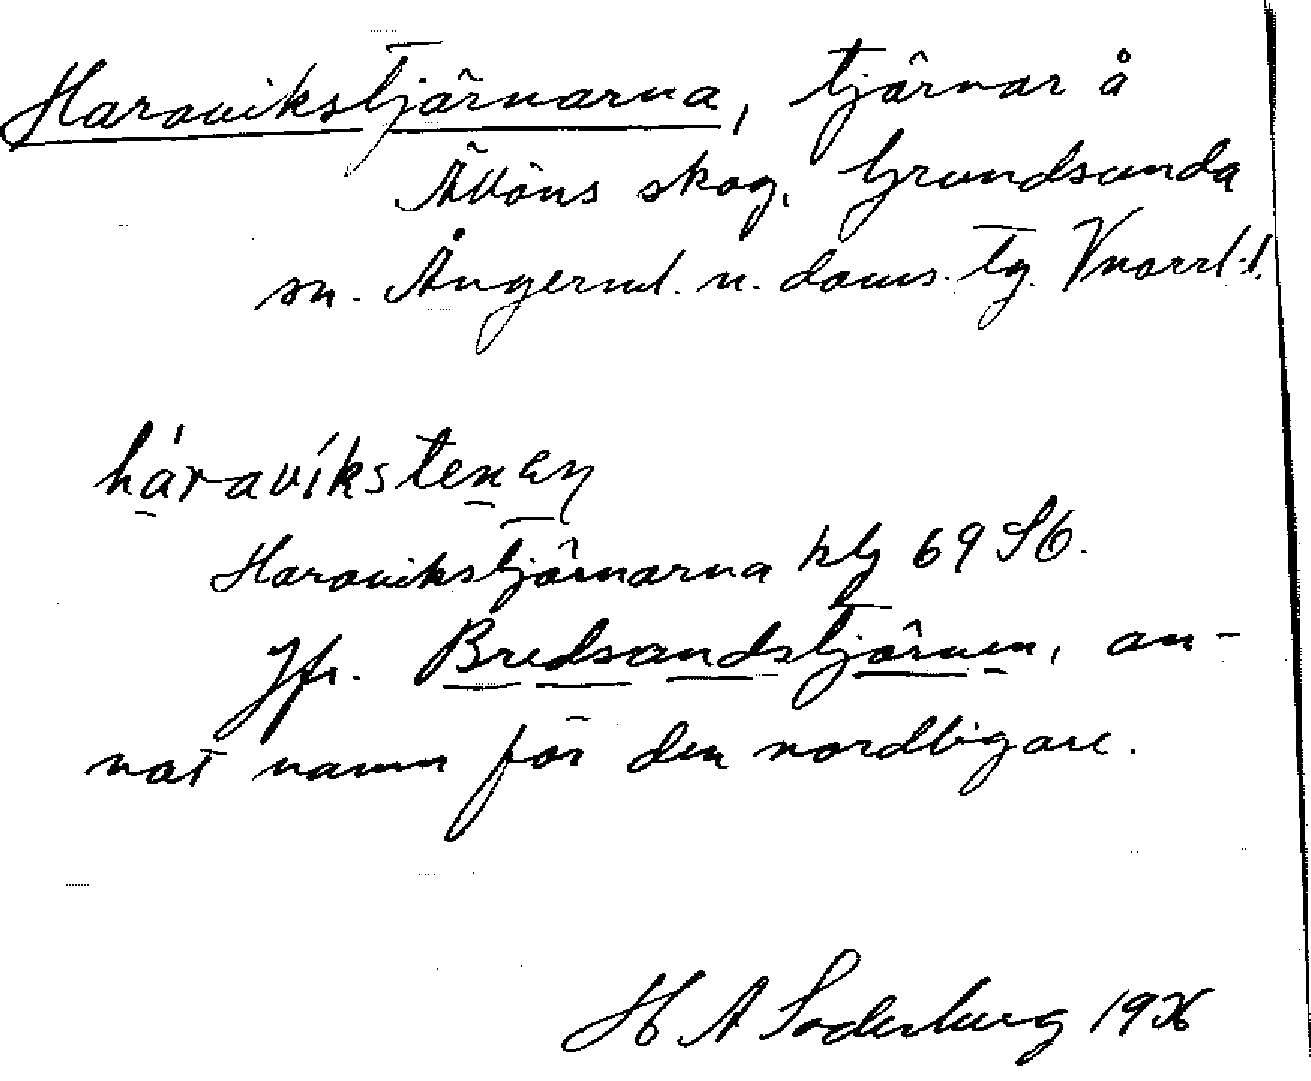 Haravikstjärnarna, tjärnar å
Älvöns skog, Grundsunda
sn. Ångerml. n. doms. tg. Vnorrl. l.
háravíkstenen
Haravikstjärnarna blg 69 St.
Jfr. Bredsandstjärnen, an-
nat namn för den nordligare.
H A Söderberg 1926